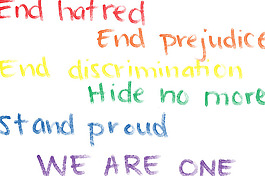 End hatred
End prejudice
End discrimination
Hide no more
Stand proud
WE ARE ONE